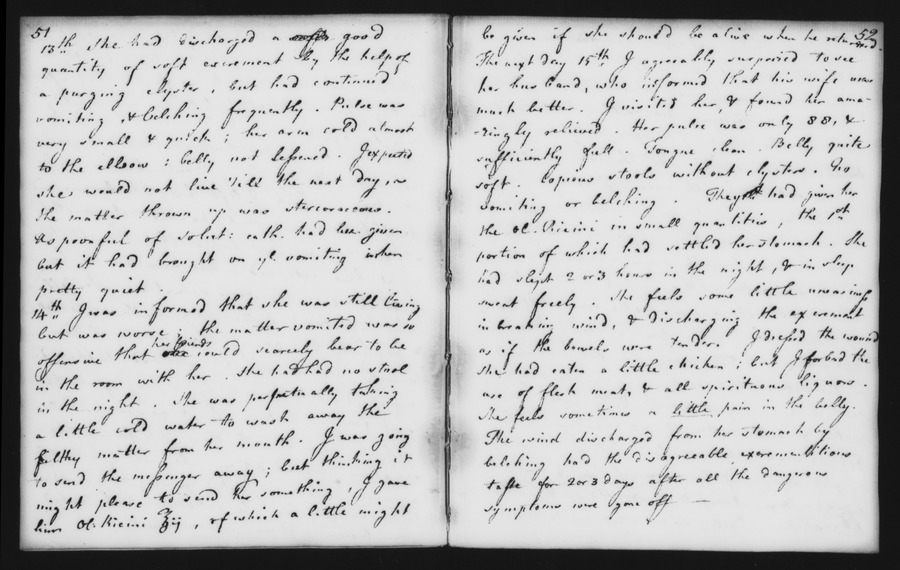 51
13th She had discharged a good
quantity of soft excrement by the help of
a purging clyster, but had continued
vomiting & belching frequently. Pulse was
very small & quick; her arm cold almost
to the elbow: belly not lessened. I expected
she would not live 'till the next day, as
the matter thrown up was stercoraceous.
A spoonful of solut: cath. had been given
but it had brought on ye vomiting when
pretty quiet.
14th I was informed that she was still living
but was worse; the matter vomited was so
offensive that her friends could scarcely bear to be
in the room with her. She had had no stool
in the night. She was perpetually taking
a little cold water to wash away the
filthy matter from her mouth. I was going
to send the messenger away; but thinking it
might please to send her something, I gave
him Ol: Ricini ʒij, of which a little might
52
be given if she should be alive when he returned.
The next day 15th I agreeably surprised to see
her husband, who informed that his wife was
much better. I visited her, & found her ama-
-zingly relieved. Her pulse was only 88, &
sufficiently full. Tongue clean. Belly quite
soft. Copious stools without clysters. No
vomiting or belching. They had given her
the Ol. Ricini in small quantities, the 1st
portion of which had settled her stomach. She
had slept 2 or 3 hours in the night, & in sleep
sweat freely. She feels some little uneasiness
in breaking wind, & discharging the excrement
as if the bowels were tender. I dressed the wound
She had eaten a little chicken; but I forbad the
use of flesh meats & all spirituous liquors.
She feels sometimes a little pain in the belly.
The wind discharged from her stomach by
belching had the disagreeable excrementitious
taste for 2 or 3 days after all the dangerous
symptoms were gone off —